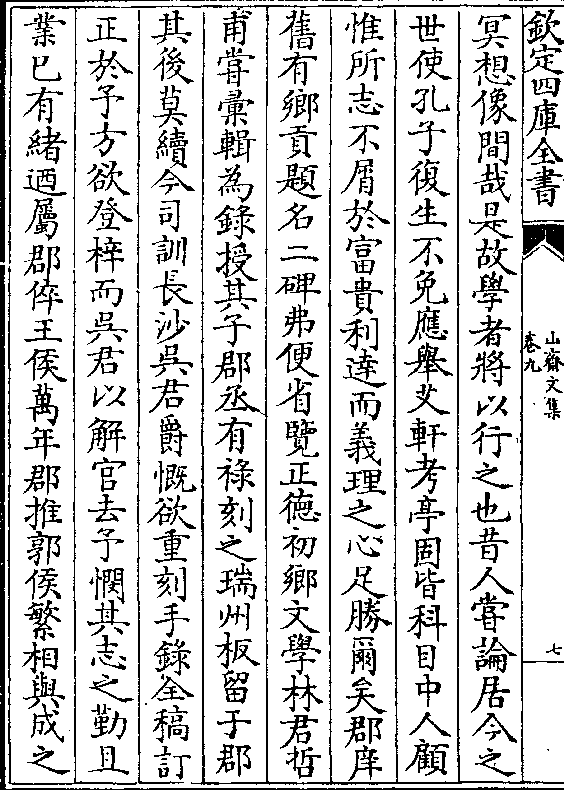 欽定四庫全書
山齋文集
卷九
七
冥想像間哉是故學者將以行之也昔人嘗論居今之
世使孔子復生不免應舉艾軒考亭固皆科目中人顧
惟所志不屑於富貴利達而義理之心足勝爾矣郡庠
舊有鄉貢題名二碑弗便省覽正德初鄉文學林君哲
甫嘗彙輯為錄授其子郡丞有祿刻之瑞州板留于郡
其後莫續今司訓長沙吳君爵慨欲重刻手錄全稿訂
正於予方欲登梓而吳君以解官去予憫其志之勤且
業已有緒迺屬郡倅王侯萬年郡推郭侯繁相與成之